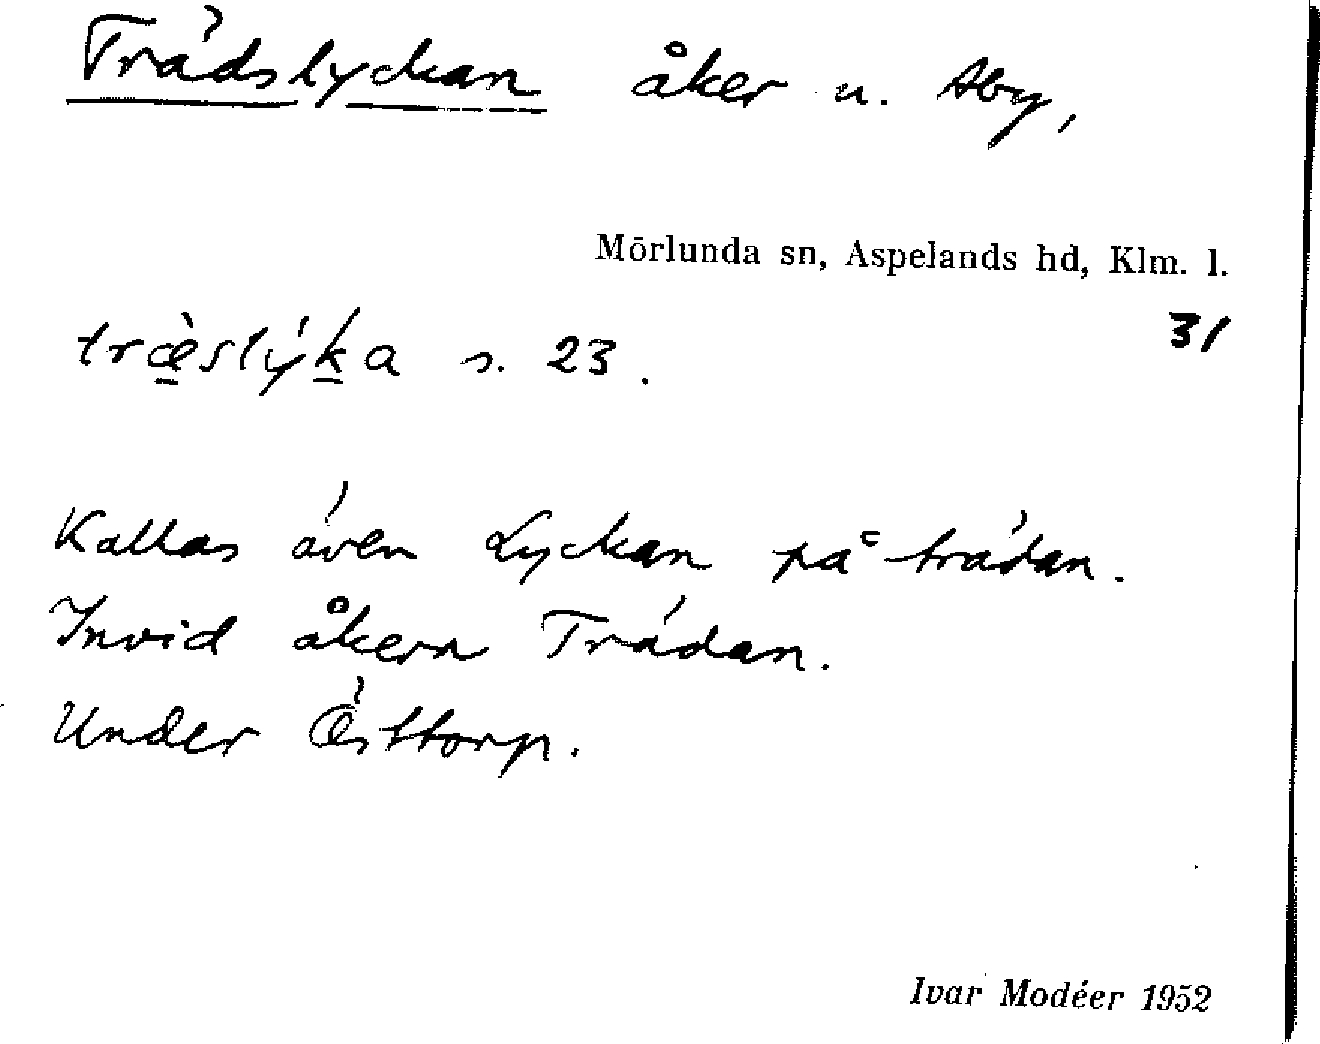 Trädslyckan åker u. Åby,
Mörlunda sn, Aspelands hd, Klm. l.
31
træ̀slýka s. 23.
Kallas även Lyckan på trädan.
Invid åkern Trädan.
Under Östtorp.
Ivar Modéer 1952